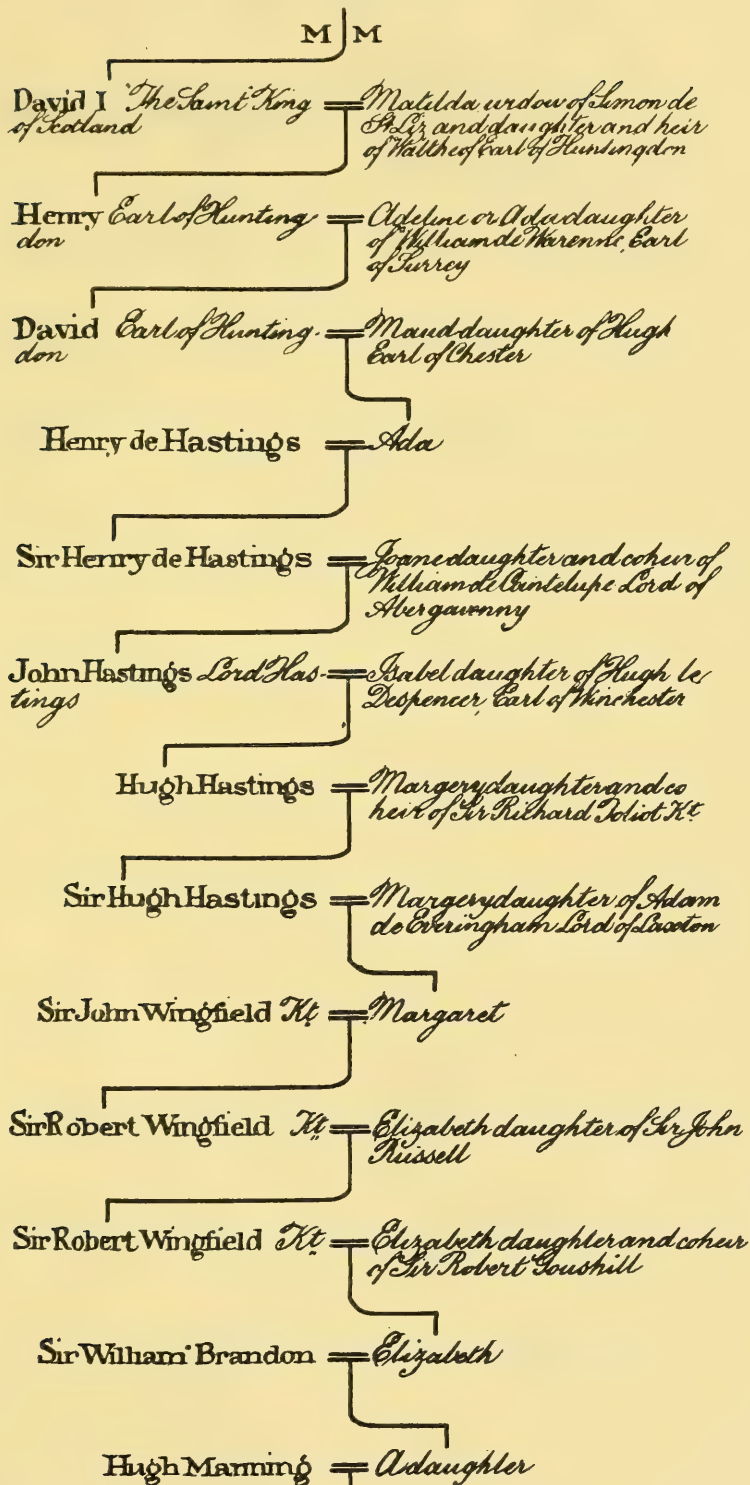 M M
David I "The Saint" King of Scotland
Matilda widow of Simon de
St Liz and daughter and heir
of Waltheof Earl of Huntingdon
Henry Earl of Hunting
don
Adeline or Ada daughter
of William de Warenne, Earl
of Surrey
David Earl of Hunting-
don
Maud daughter of Hugh
Earl of Chester
Henry de Hastings
Ada
Sir Henry de Hastings
Joane daughter and coheir of
William de Cantelupe Lord of
Abergavenny
John Hastings Lord Has-
tings
Isabel daughter of Hugh le
Despencer, Earl of Winchester
Hugh Hastings
Margery daughter and co
heir of Sir Richard Foliot Kt.
Sir Hugh Hastings
Margery daughter of Adam
de Everingham Lord of Laxton
Sir John Wingfield Kt
Margaret
Sir Robert Wingfield Kt
Elizabeth daughter of Sir John
Russell
Sir Robert Wingfield Kt
Elizabeth daughter and coheir
of Sir Robert Goushill
Sir William Brandon
Elizabeth
Hugh Manning
A daughter